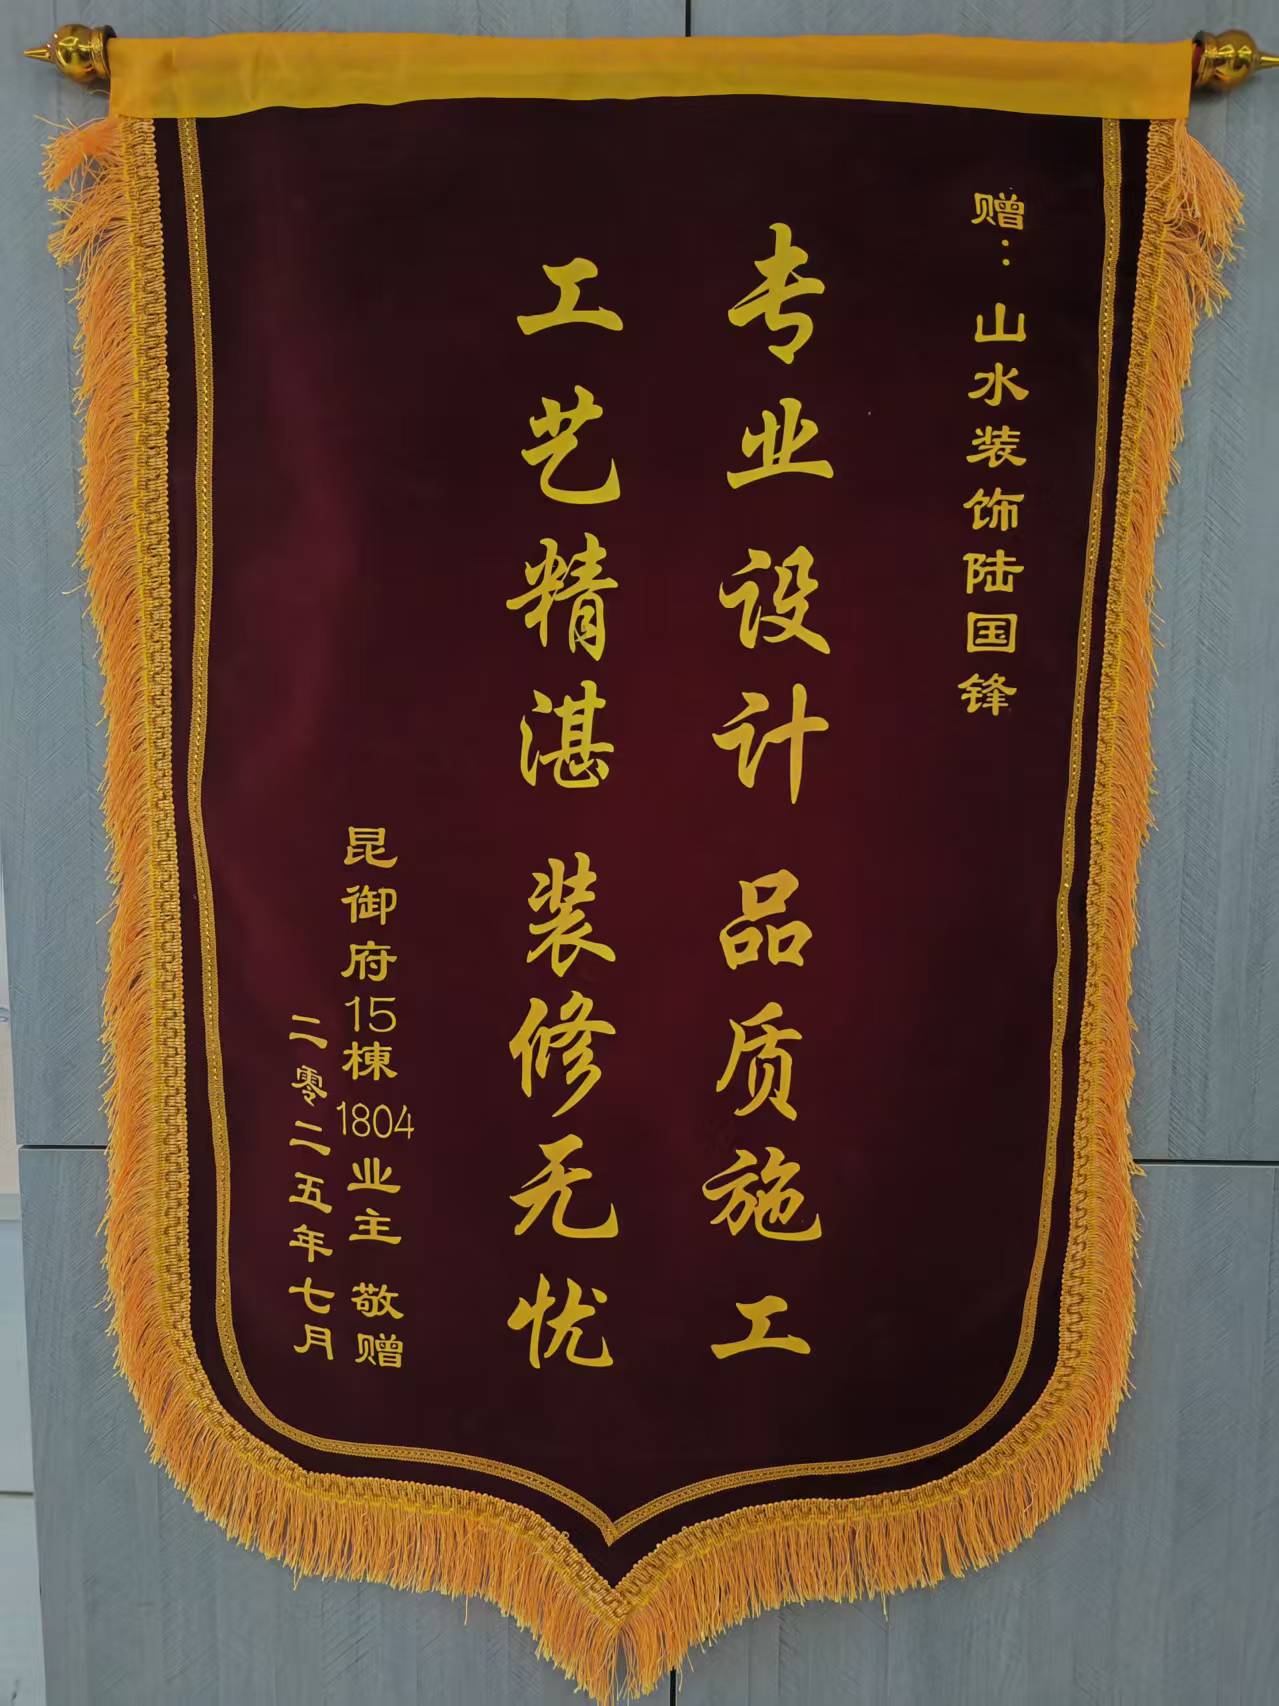 赠：山水装饰陆国锋
专业设计 品质施工
工艺精湛 装修无忧
昆御府15棟1804业主 敬赠
二零二五年七月